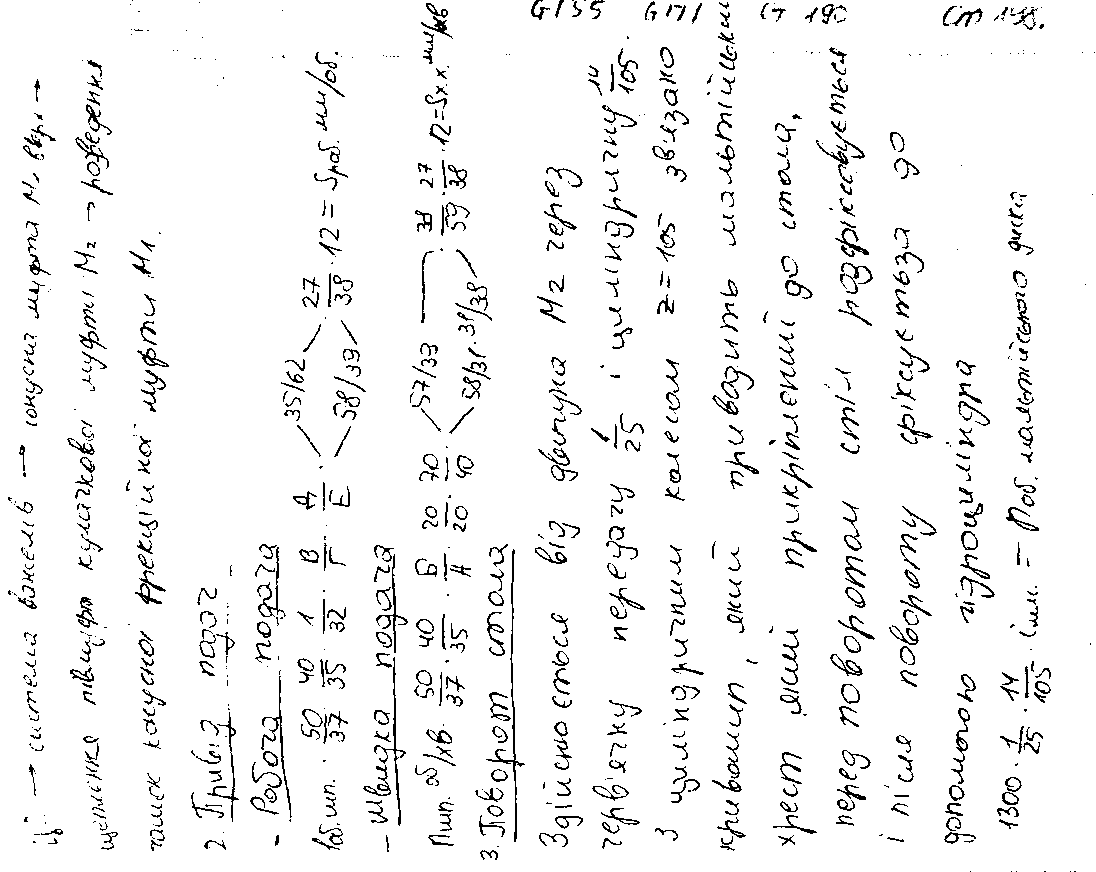 Ц₁ → система важелів → конусна муфта М₁ вкл →
щеплення півмуфт кулачкової муфти М₂ → розведення
конусної фрекційної муфти М1.
2. Привід подач
- Робоча подача
1об.шп. · 50/37 · 40/35 · 1/32 · В/Г · Д/Е · 35/62 58/39 · 27/38 · 12 = Sроб. мм/об.
- Швидка подача
nшп. об/хв · 50/37 · 40/35 · Б/А · 20/20 · 70/40 · 57/33 58/31 · 31/38 · 38/59 · 27/38 · 12 = Sх.х. мм/хв
3. Поворот стола
Здійснюється від двигуна М2 через
червячну передачу 1/25 і циліндричну 14/105.
З циліндричним колесом z=105 звязано
кривошип, який приводить мальтійський
хрест який прикріплений до стола,
перед поворотом стіл розфіксовується
і після повороту фіксується за до
допомогою гідроциліндра
1300 · 1/25 · 14/105 · iмм. = nоб. мальтійського диска
G155 G171 G190 Ст 148.